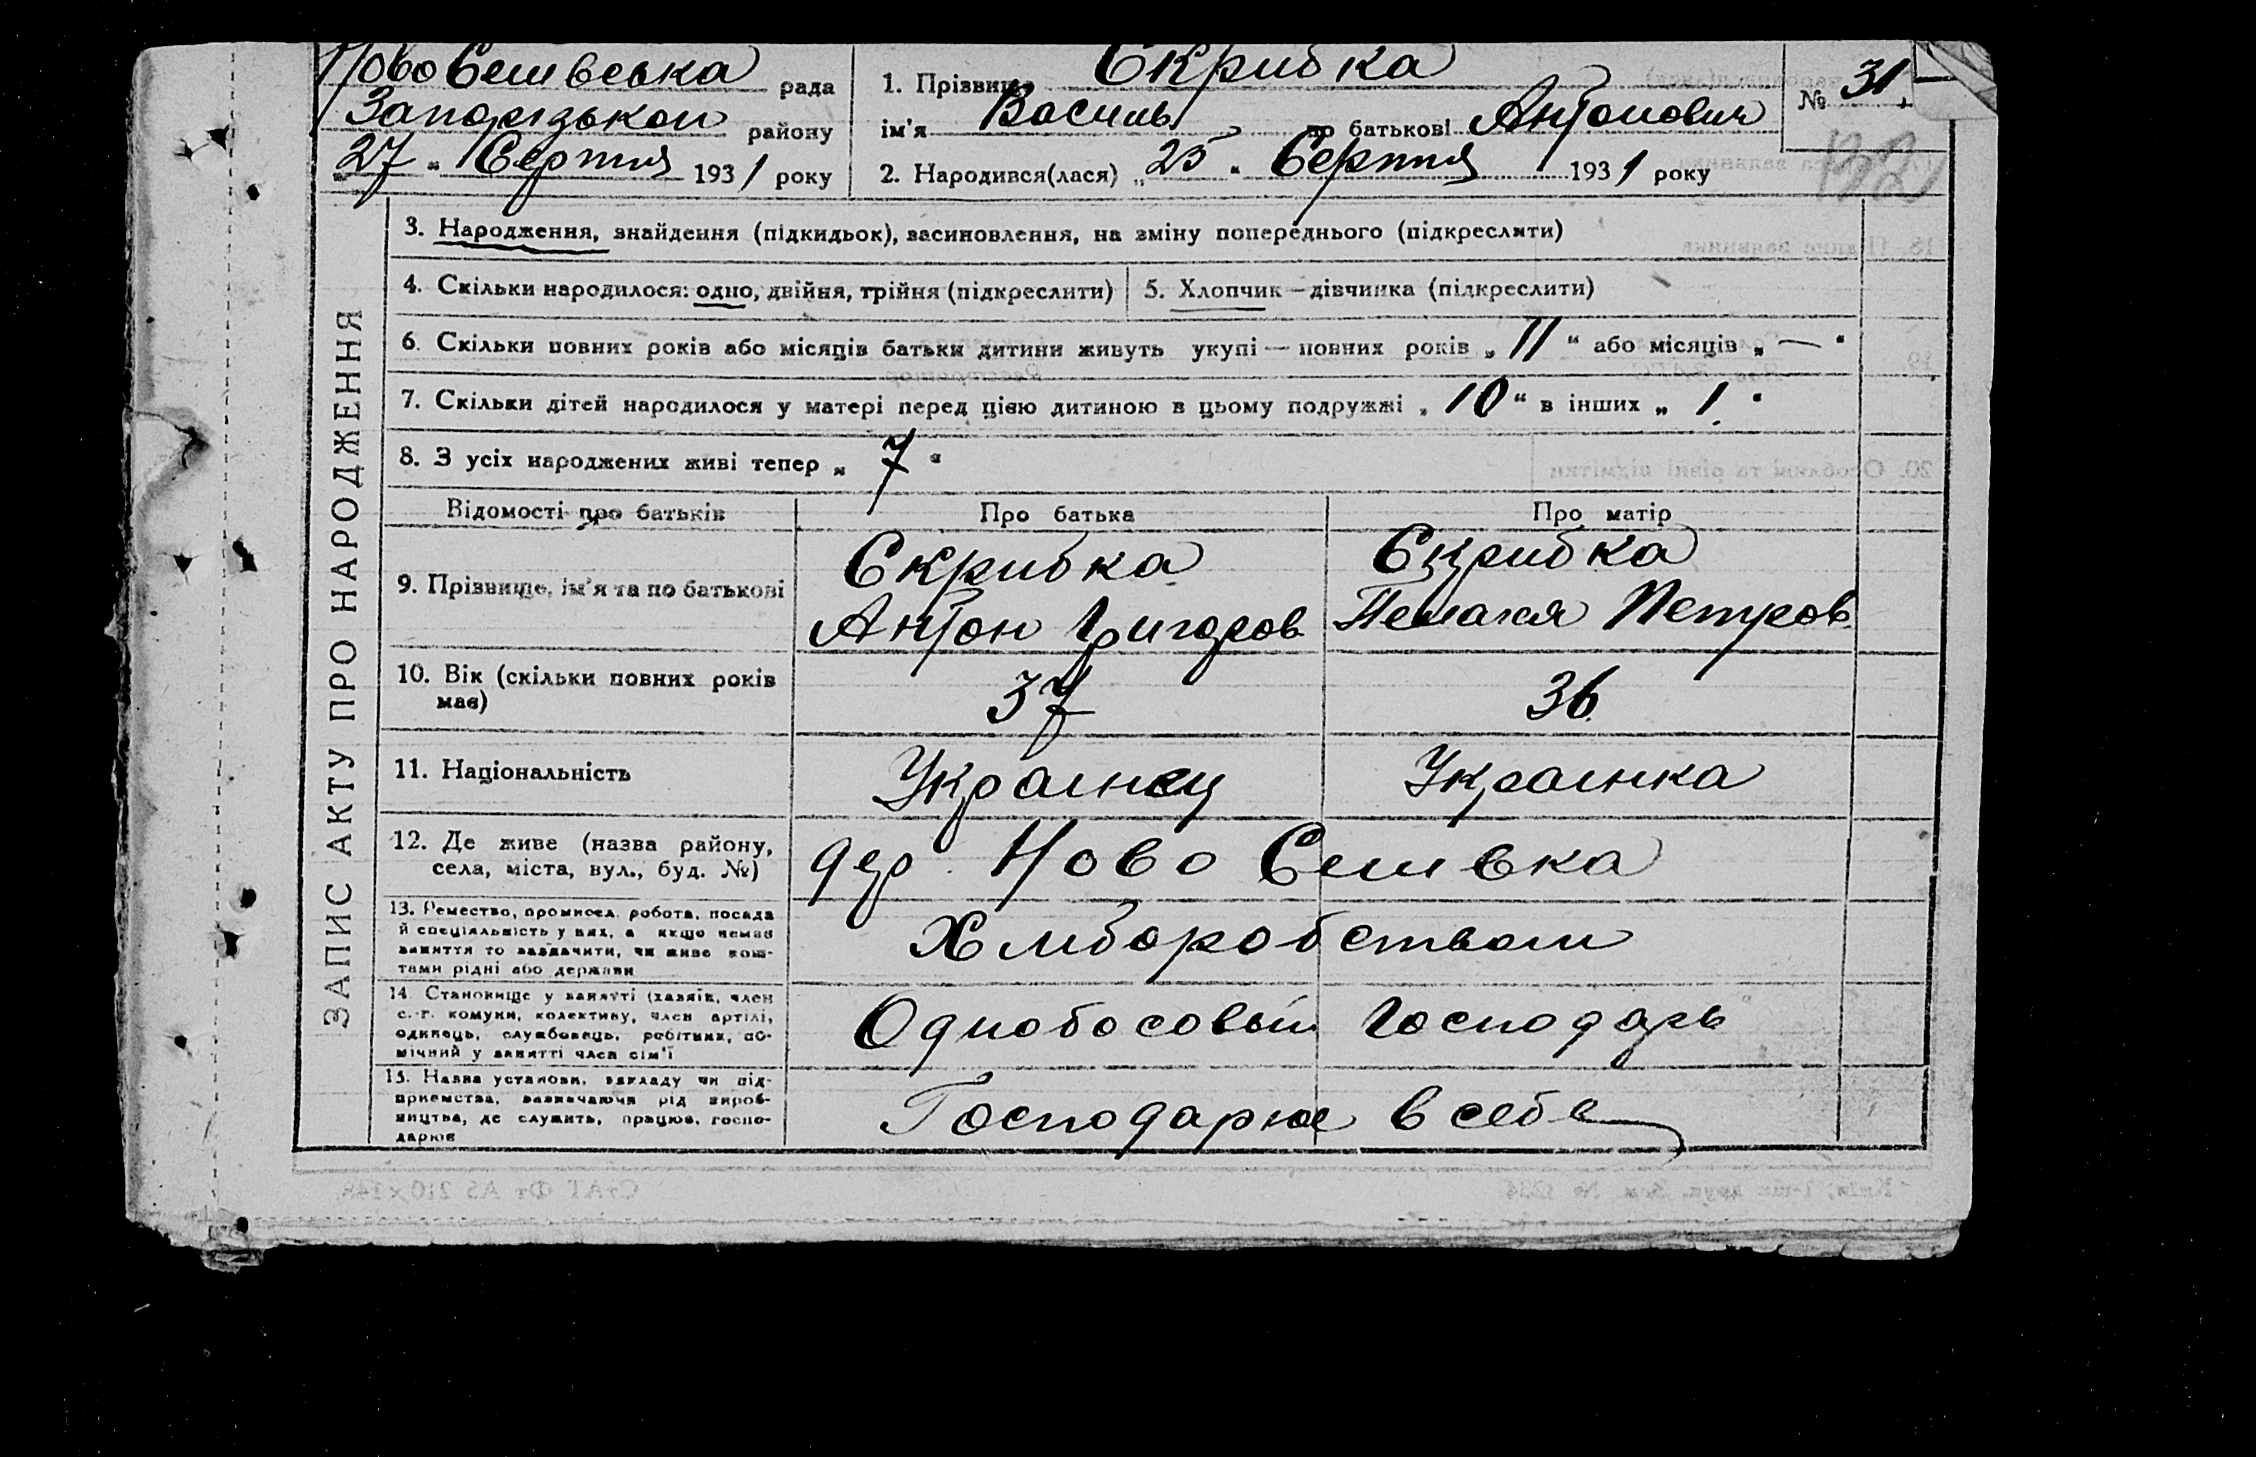 НовоСешвська рада
Запорізькои району
„27“ Серпня 1931 року
1. Прізвище Скрибка
ім'я Василь по батькові Антонович
2. Народився(лася) „25“ Серпня 1931 року
№ 31
132
ЗАПИС АКТУ ПРО НАРОДЖЕННЯ
3. Народження, знайдення (підкидьок), засиновлення, на зміну попереднього (підкреслити)
4. Скільки народилося: одно, двійня, трійня (підкреслити)
5. Хлопчик — дівчинка (підкреслити)
6. Скільки повних років або місяців батьки дитини живуть укупі — повних років „11“ або місяців „—“
7. Скільки дітей народилося у матері перед цією дитиною в цьому подружжі „10“ в інших „1.“
8. З усіх народжених живі тепер „7“
Відомості про батьків
Про батька
Про матір
9. Прізвище, ім'я та по батькові
Скрибка
Антон Григоров
Скрибка
Пелагея Петров.
10. Вік (скільки повних років
має)
37
36
11. Національність
Украинец
Украинка
12. Де живе (назва району,
села, міста, вул., буд. №)
дер. Ново Сешвка
13. Ремество, промисел, робота, посада
й спеціяльність у них, а якщо немає
заняття то зазначити, чи живе кош-
тами рідні або держави
Хлиборобством
14. Становище у занятті (хазяїн, член
с.-г. комуни, колективу, член артілі,
одинець, службовець, робітник, по-
мічний у занятті член сім'ї
Однобосовый господарь
15. Назва установи, закладу чи під-
приємства, зазначаючи рід вироб-
ництва, де служить, працює, госпо-
дарює
Господарюе в себе